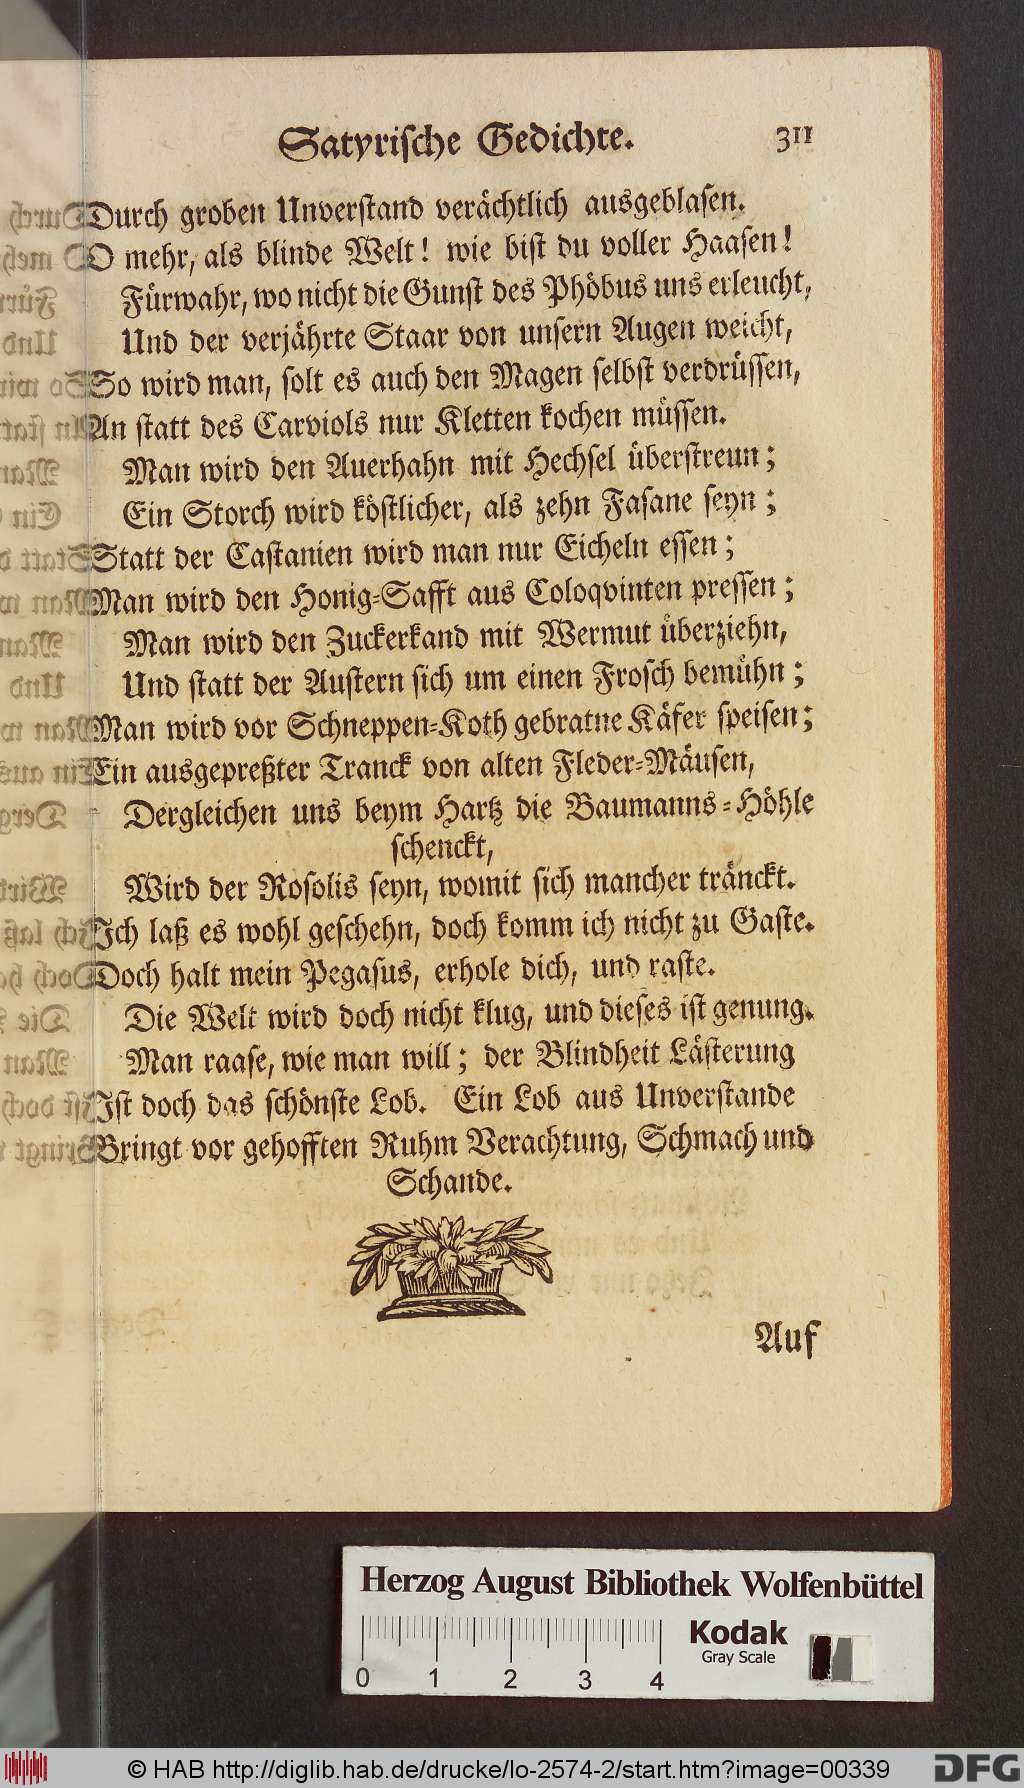 Satyrische Gedichte. 311
Durch groben Unverstand verächtlich ausgeblasen.
O mehr, als blinde Welt! wie bist du voller Haasen!
Fürwahr, wo nicht die Gunst des Phöbus uns erleucht,
Und der verjährte Staar von unsern Augen weicht,
So wird man, solt es auch den Magen selbst verdrüssen,
An statt des Carviols nur Kletten kochen müssen.
Man wird den Auerhahn mit Hechsel überstreun;
Ein Storch wird köstlicher, als zehn Fasane seyn;
Statt der Castanien wird man nur Eicheln essen;
Man wird den Honig-Safft aus Coloqvinten pressen;
Man wird den Zuckerkand mit Wermut überziehn,
Und statt der Austern sich um einen Frosch bemühn;
Man wird vor Schneppen-Koth gebratne Käfer speisen;
Ein ausgepreßter Tranck von alten Fleder-Mäusen,
Dergleichen uns beym Hartz die Baumanns-Höhle
schenckt,
Wird der Rosolis seyn, womit sich mancher tränckt.
Ich laß es wohl geschehn, doch komm ich nicht zu Gaste.
Doch halt mein Pegasus, erhole dich, und raste.
Die Welt wird doch nicht klug, und dieses ist genung.
Man raase, wie man will; der Blindheit Lästerung
Ist doch das schönste Lob. Ein Lob aus Unverstande
Bringt vor gehofften Ruhm Verachtung, Schmach und
Schande.
Auf
Herzog August Bibliothek Wolfenbüttel
Kodak
Gray Scale
0 1 2 3 4
© HAB http://diglib.hab.de/drucke/lo-2574-2/start.htm?image=00339
DFG